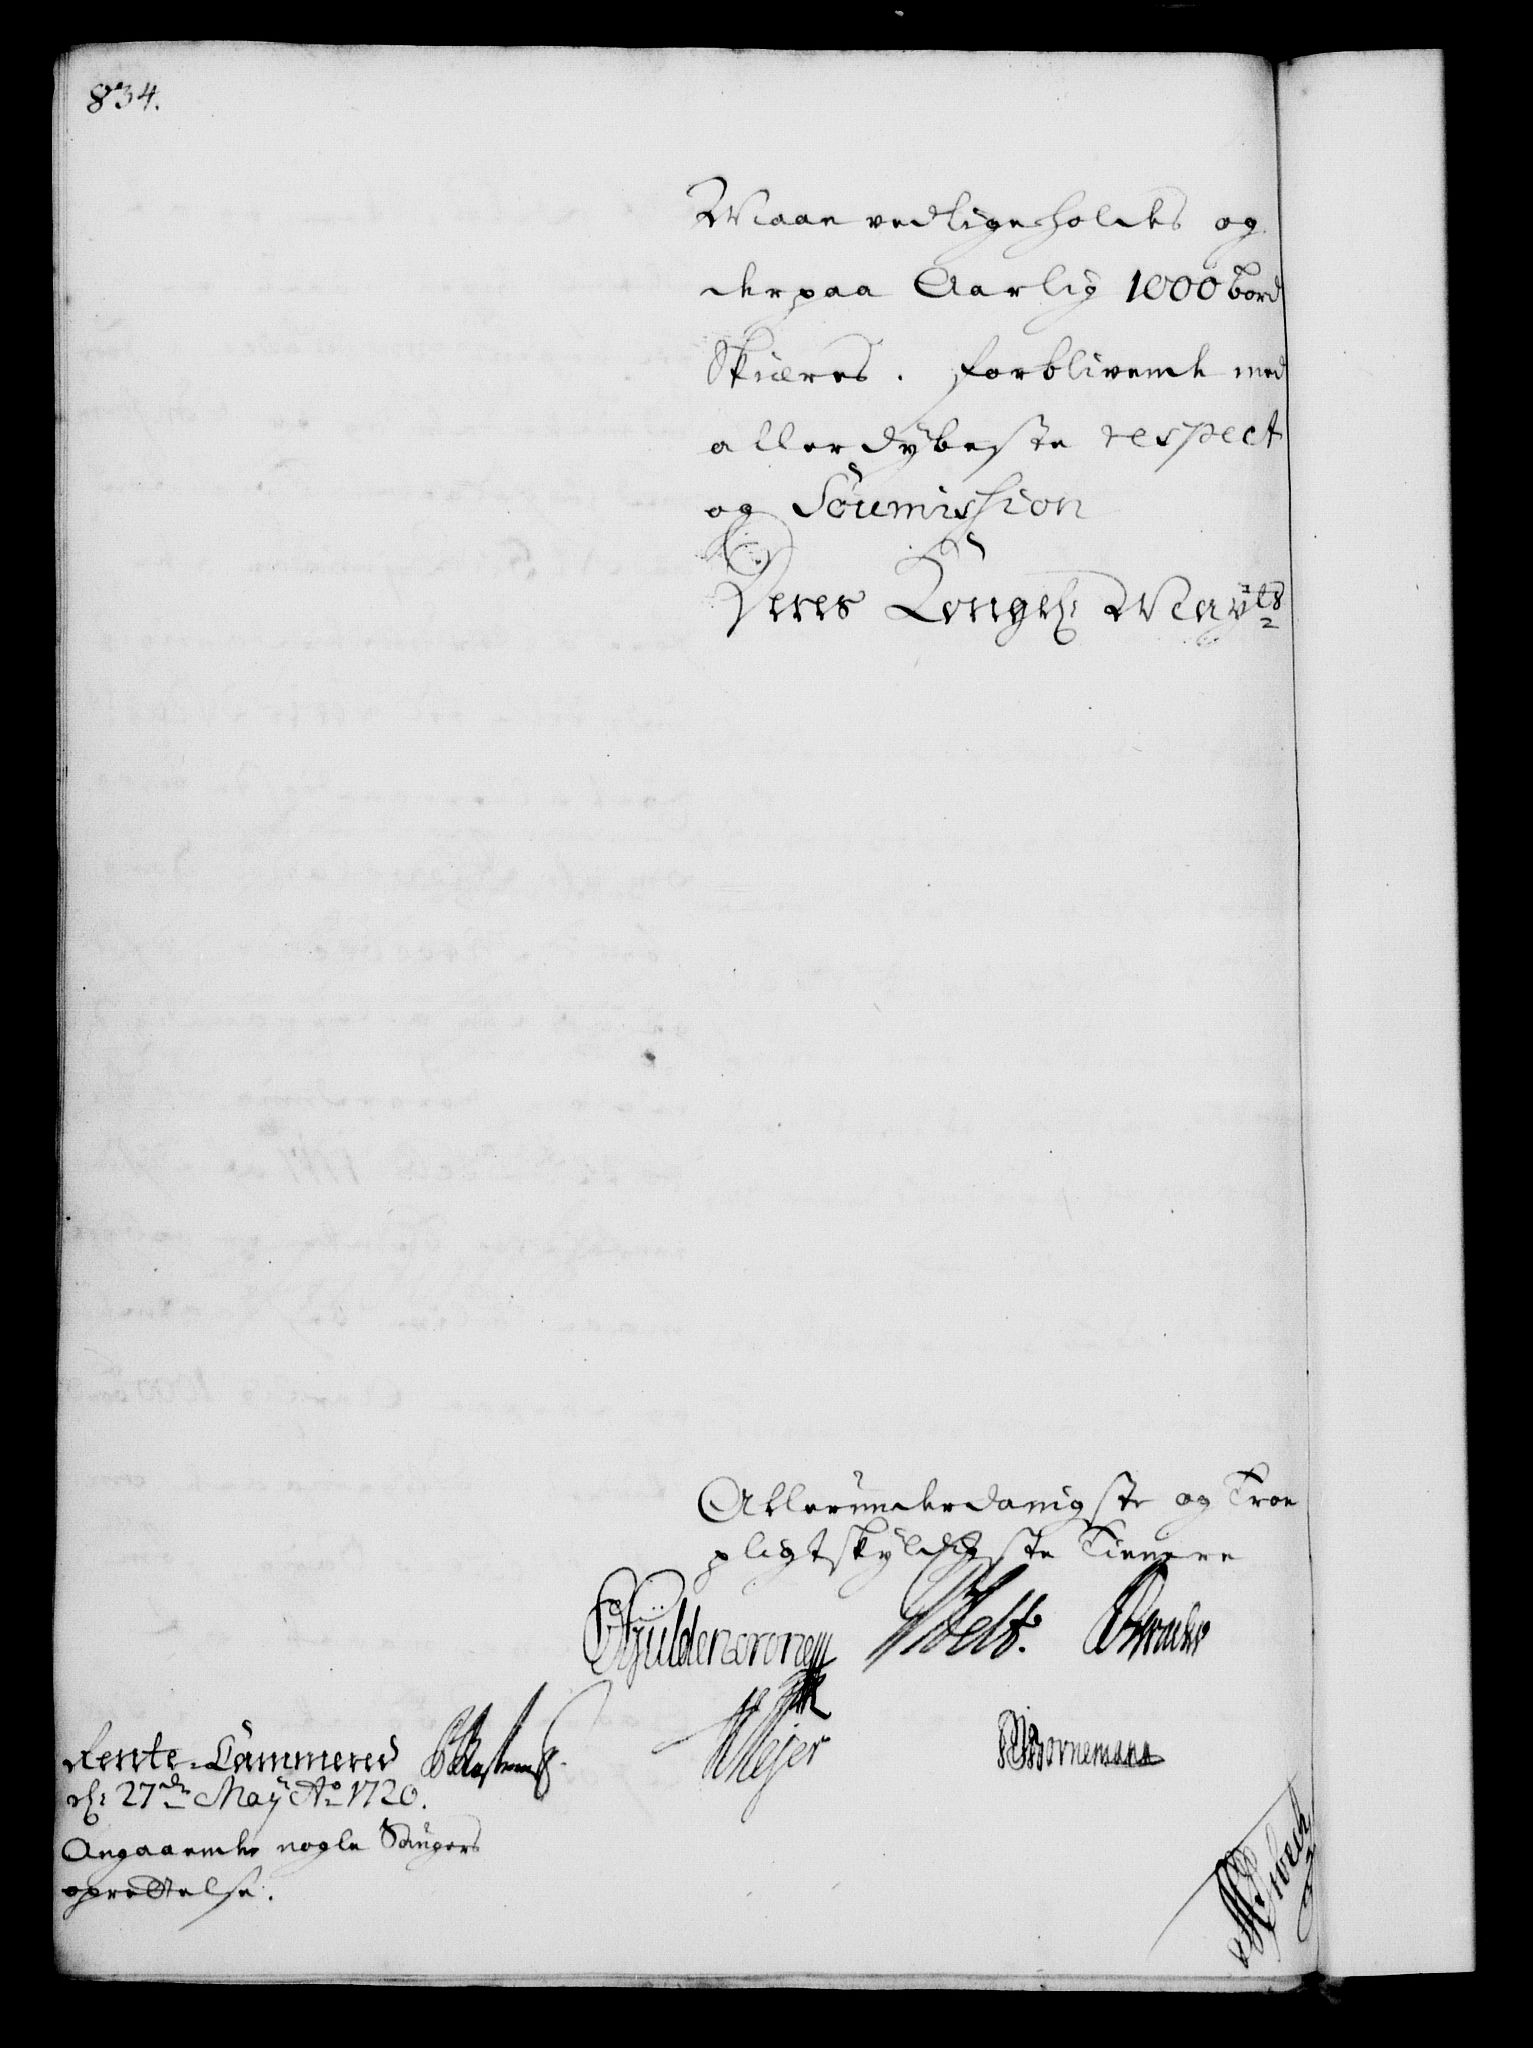 834.
Maae vedligeholdes og
derpaa Aarlig 1000 bord
Skiæres. forblivende med
allerdybeste respect
og Soumission
Deres Kongel: Mayts
Allerunderdanigste og Troe
pligtskyldigste Tienere
Güldencrone Holst.
Meyer Bornemann
Rente-Cammeret
d: 27de May Ao 1720.
Angaaende nogle Saugers
oprettelse.